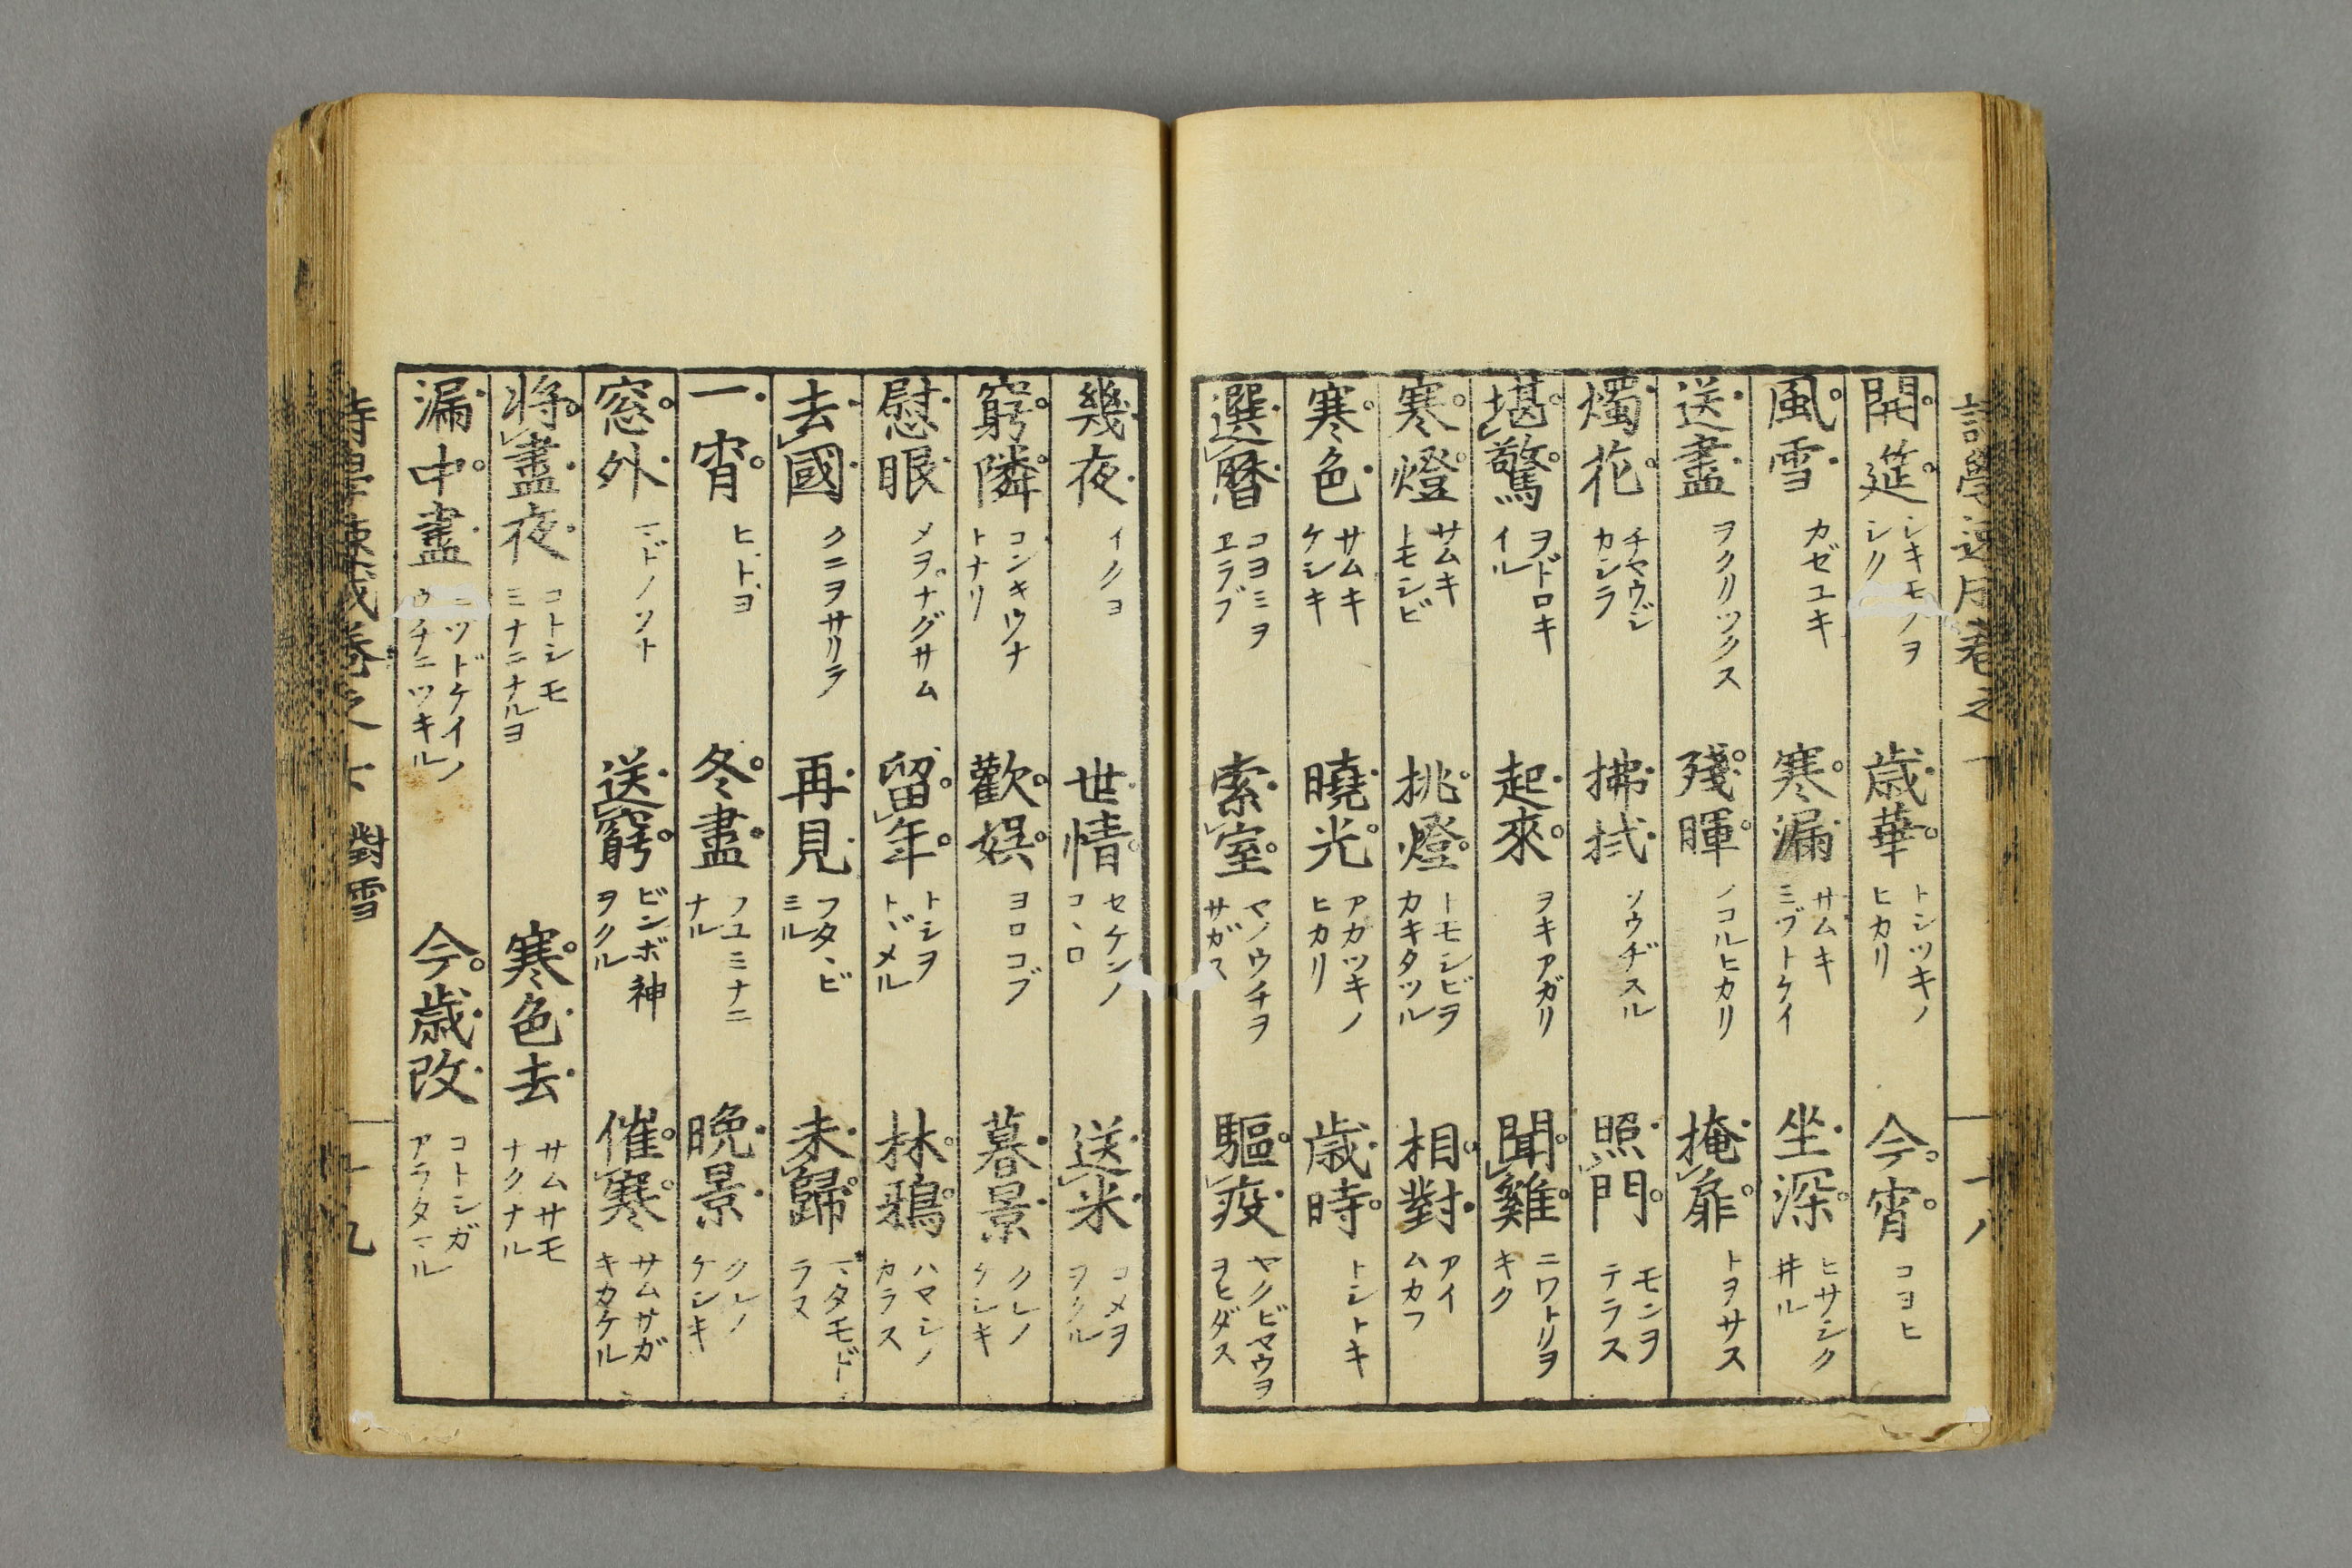 開筵 シキモノヲシク 歳華 トシツキノヒカリ 今宵 コヨヒ
風雪 カゼユキ 寒漏 サムキミヅトケイ 坐深 ヒサシク井ル
送盡 ヲクリツクス 殘暉 ノコルヒカリ 掩扉 トヲサス
燭花 チヤウジカシラ 拂拭 ソウヂスル 照門 モンヲテラス
堪驚 ヲドロキイル 起來 ヲキアガリ 聞雞 ニワトリヲキク
寒燈 サムキトモシビ 挑燈 トモシビヲカキタツル 相對 アイムカフ
寒色 サムキケシキ 曉光 アカツキノヒカリ 歳時 トシトキ
選暦 コヨミヲヱラブ 索室 ヤノウチヲサガス 驅疫 ヤクビヤウヲヲヒダス
幾夜 イクヨ 世情 セケンノコヽロ 送米 コメヲヲクル
窮隣 コンキウナトナリ 歡娯 ヨロコブ 暮景 クレノケシキ
慰眠 メヲナグサム 留年 トシヲトヾメル 林鴉 ハヤシノカラス
去國 クニヲサリテ 再見 フタヽビミル 未歸 マタモドラヌ
一宵 ヒトヨ 冬盡 フユミナニナル 晩景 クレノケシキ
窓外 マドノソト 送窮 ビンボ神ヲクル 催寒 サムサガキカケル
将盡夜 コトシモミナニナルヨ 寒色去 サムサモナクナル
漏中盡 ミヅドケイノウチニツキル 今歳改 コトシガアラタマル
對雪
十九